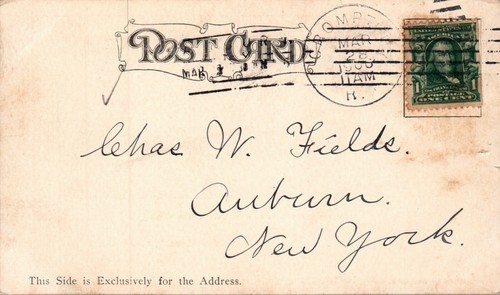 POST CARD
MAR
1906
11 AM
R.
1
Chas W. Fields.
Auburn.
New York.
This Side is Exclusively for the Address.